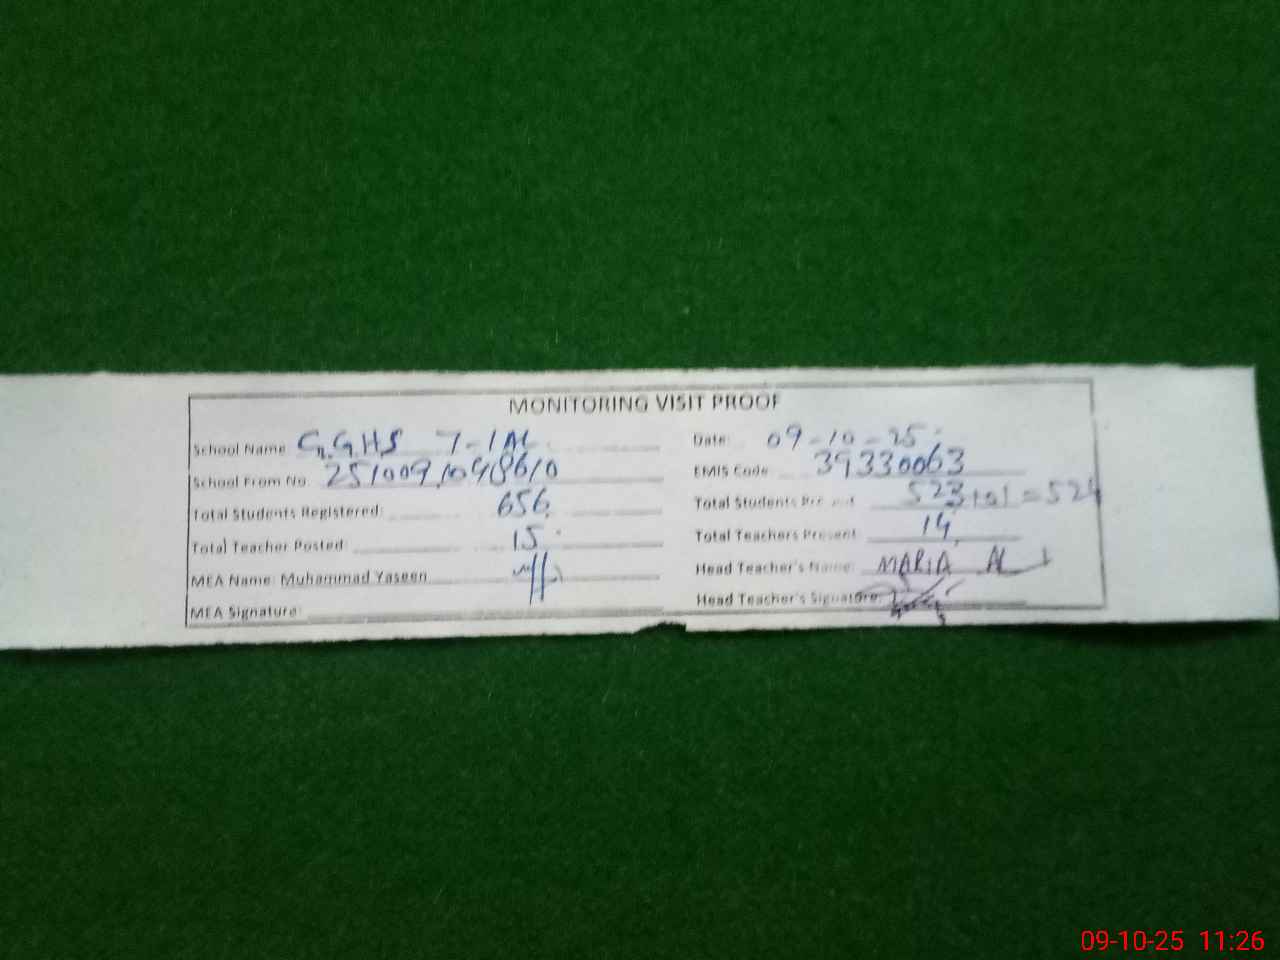 MONITORING VISIT PROOF
School Name G.GHS 7-1AL Date: 09-10-25
School From No. 251009,1048610 EMIS Code 39330063
Total Students Registered: 656 Total Students Present 523+01=524
Total Teacher Posted: 15 Total Teachers Present 14
MEA Name: Muhammad Yaseen Head Teacher's Name: MARIA
MEA Signature: Head Teacher's Signature:
09-10-25 11:26